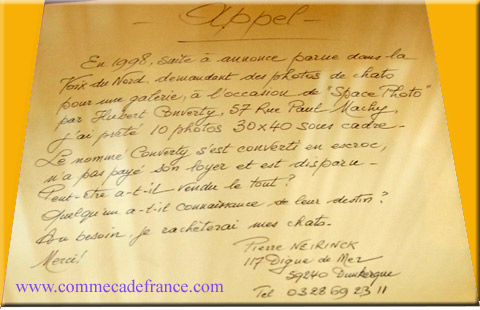 - Appel -
En 1998, suite à annonce parue dans la
Voix du Nord demandant des photos de chats
pour une galerie, à l'occasion de "Space Photo"
par Hubert Converty, 57 Rue Paul Machy,
j'ai prêté 10 photos 30x40 sous cadre-
Le nommé Converty s'est converti en escroc,
n'a pas payé son loyer et est disparu-
Peut-être a-t-il vendu le tout?
Quelqu'un a-t-il connaissance de leur destin?
Au besoin, je rachèterai mes chats-
Merci!
Pierre NEIRINCK
117 Digue de Mer
59240 Dunkerque
Tel 03 28 69 23 11
www.commecadefrance.com